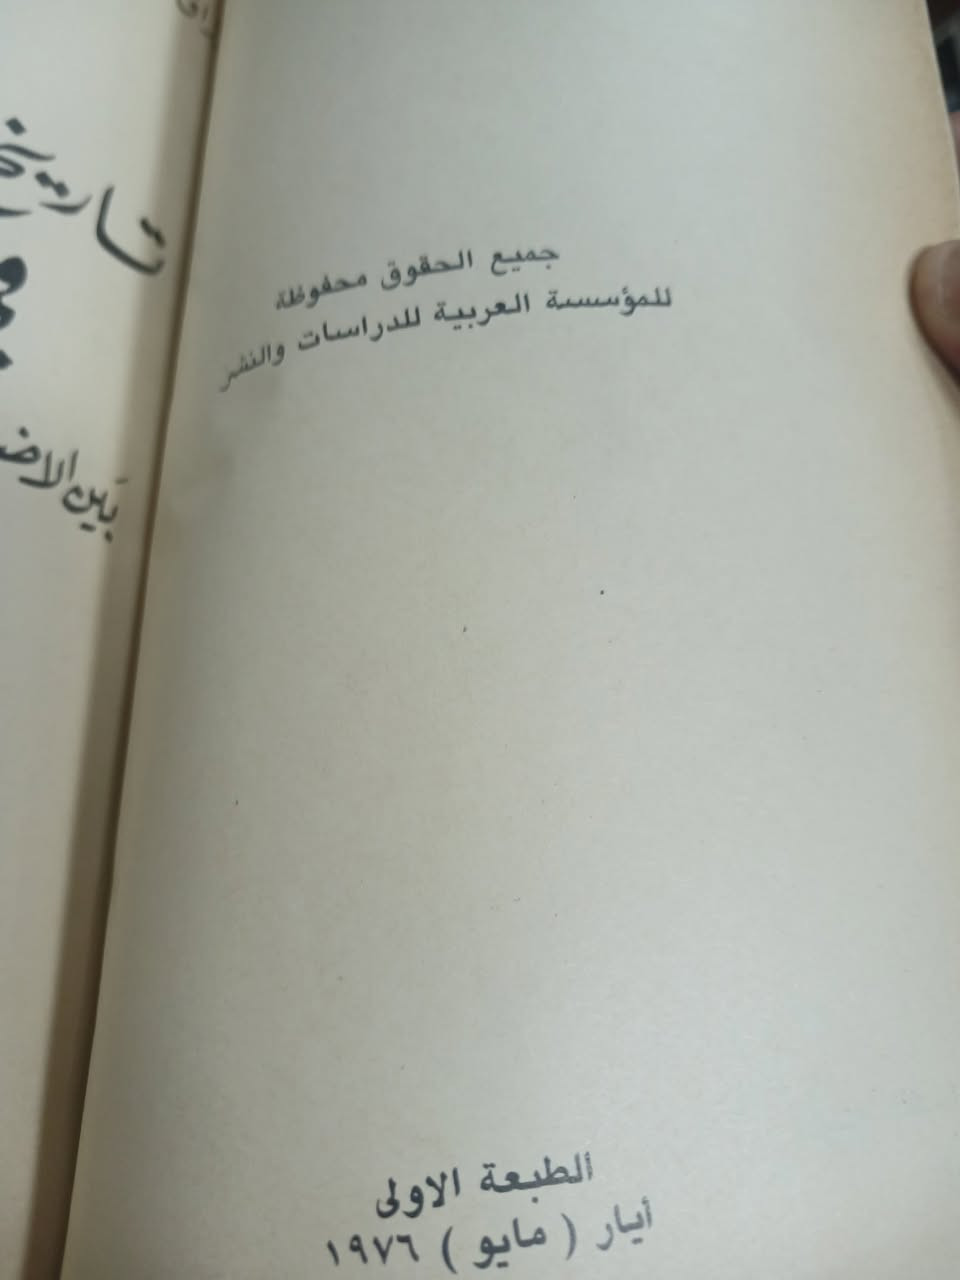 جميع الحقوق محفوظة
للمؤسسة العربية للدراسات والنشر
الطبعة الاولى
أيار ( مايو ) ١٩٧٦
بين